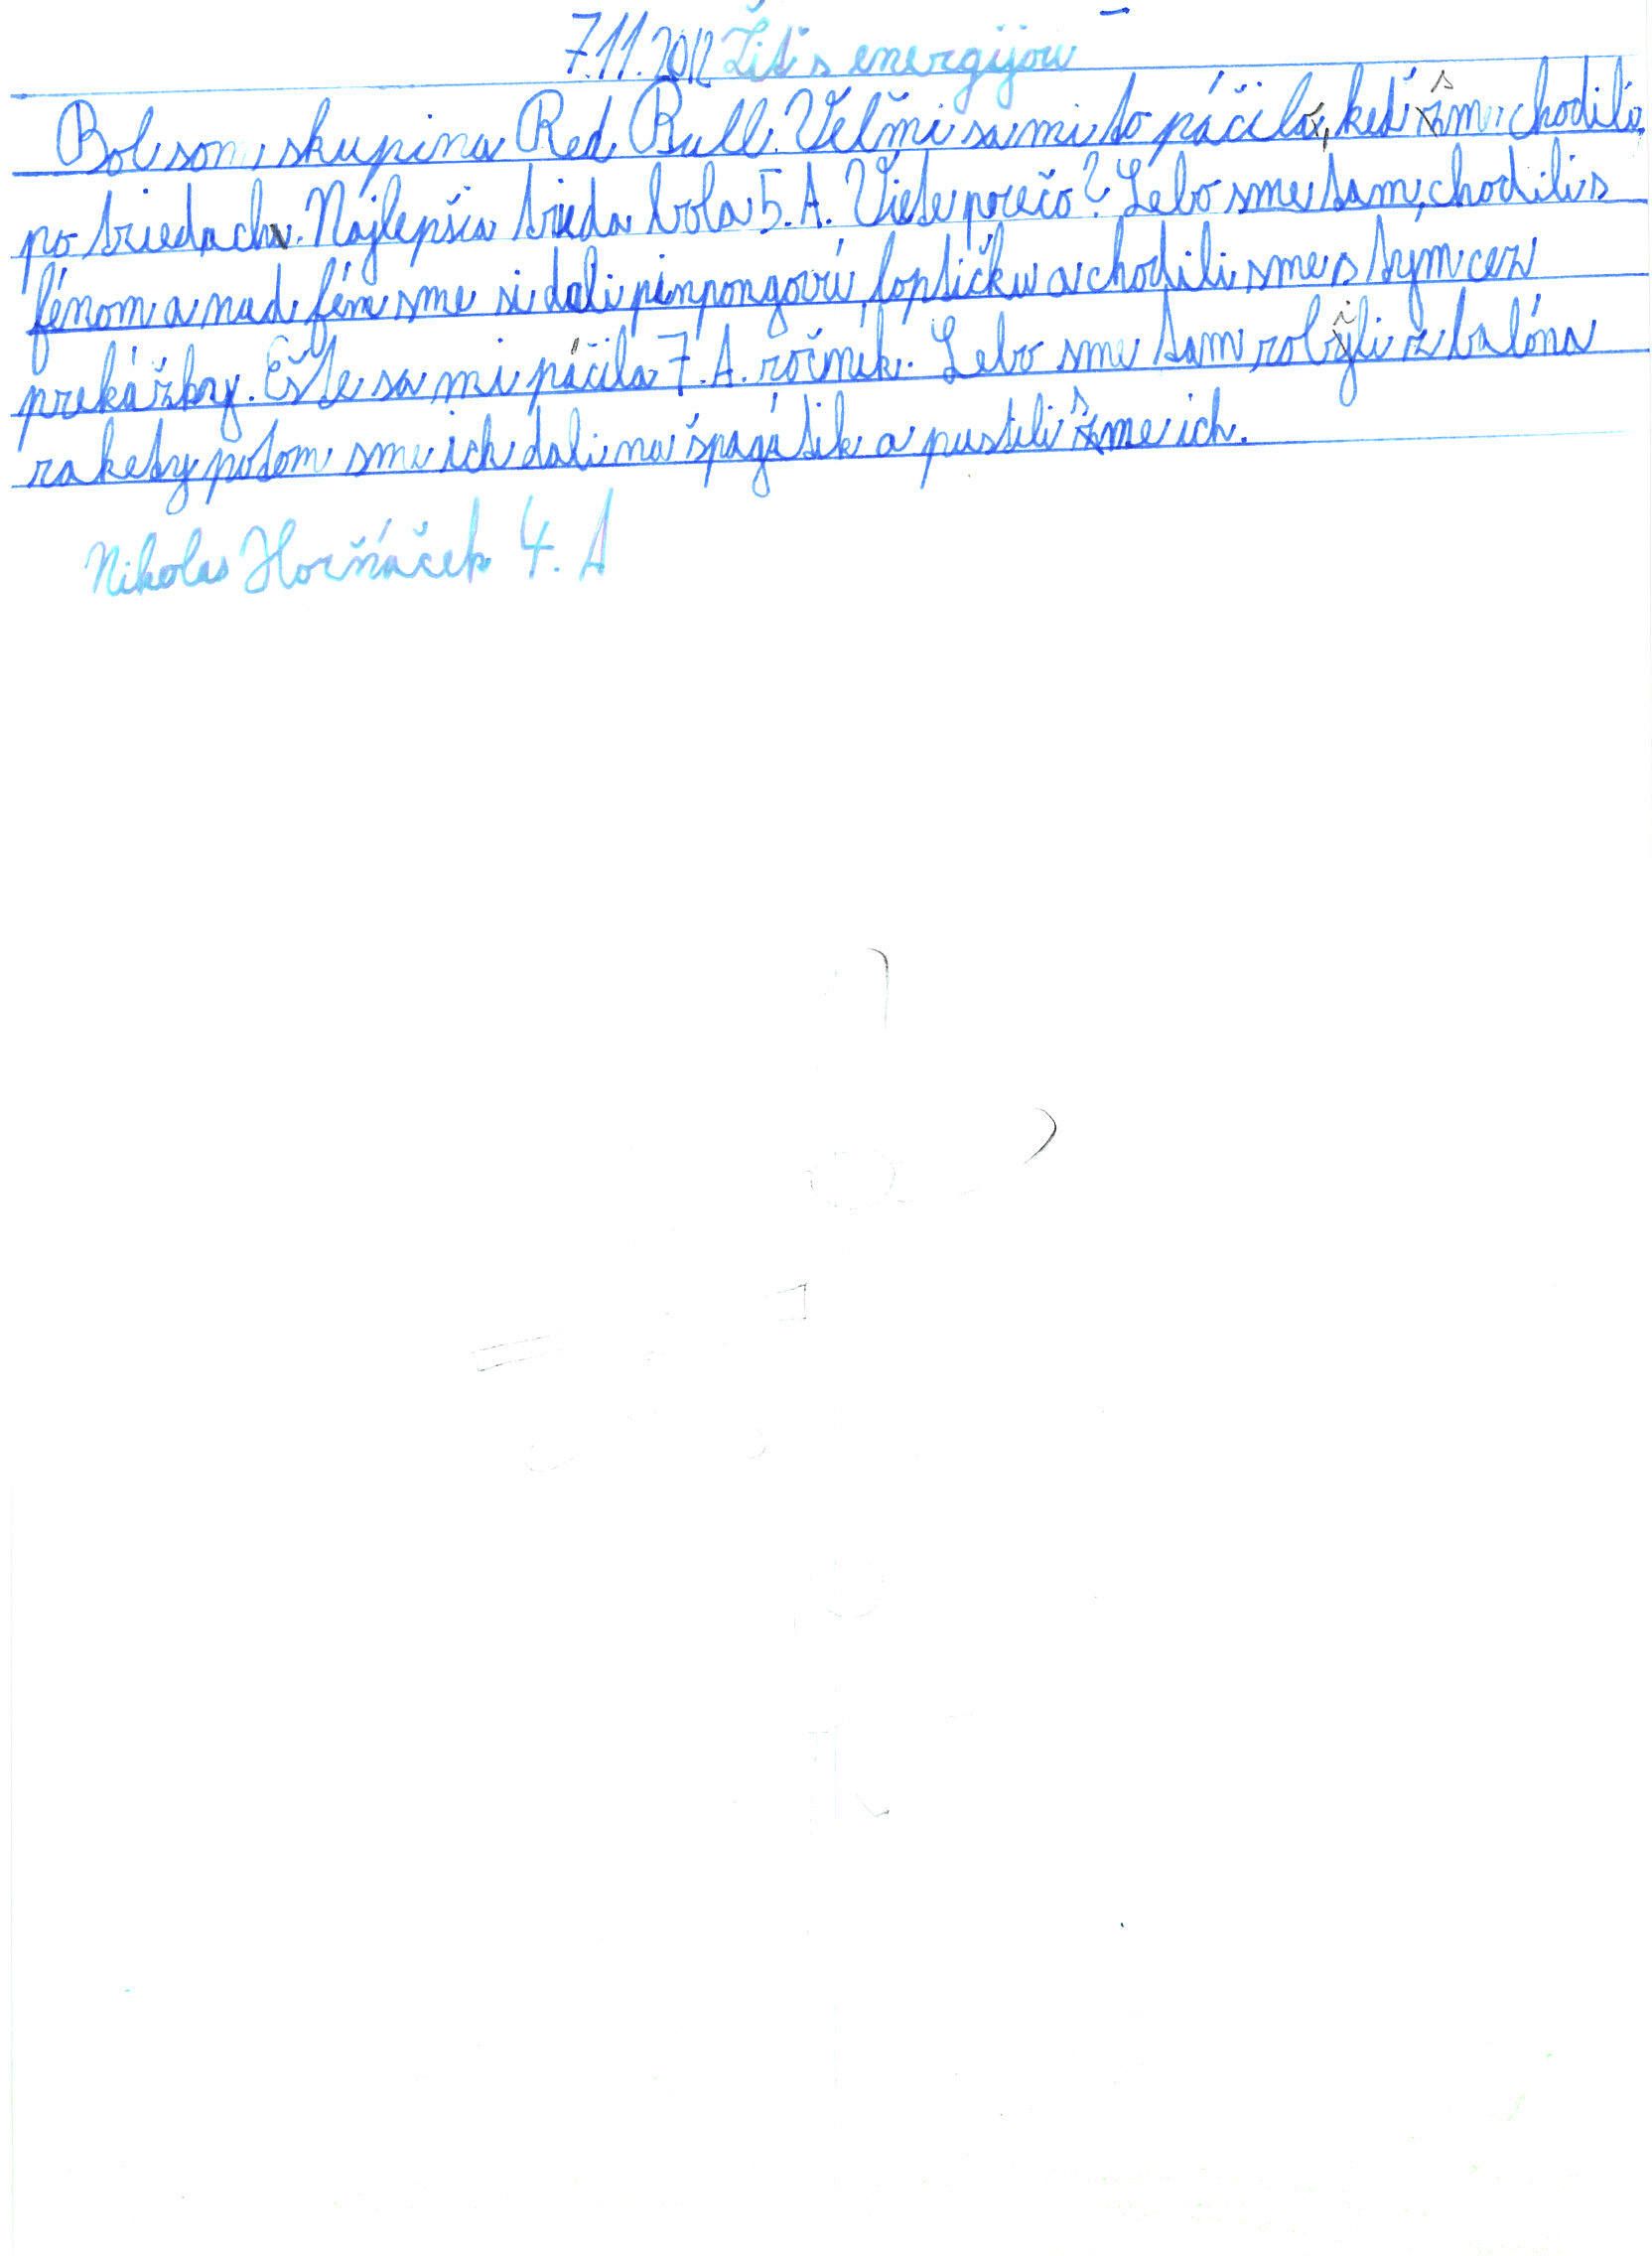 7.11.2012 Žiť s energijou
Bol som skupina Red Bull. Veľmi sa mi to páčilo, keď sme chodili
po triedach. Najlepšia trieda bola 5. A. Viete prečo? Lebo sme tam chodili s
fénom a nad fén sme si dali pinpongovú loptičku a chodili sme s tým cez
prekážky. Ešte sa mi páčila 7. A. ročník. Lebo sme tam robili z balóna
rakety potom sme ich dali na špagátik a pustili sme ich.
Nikolas Horňáček 4. A